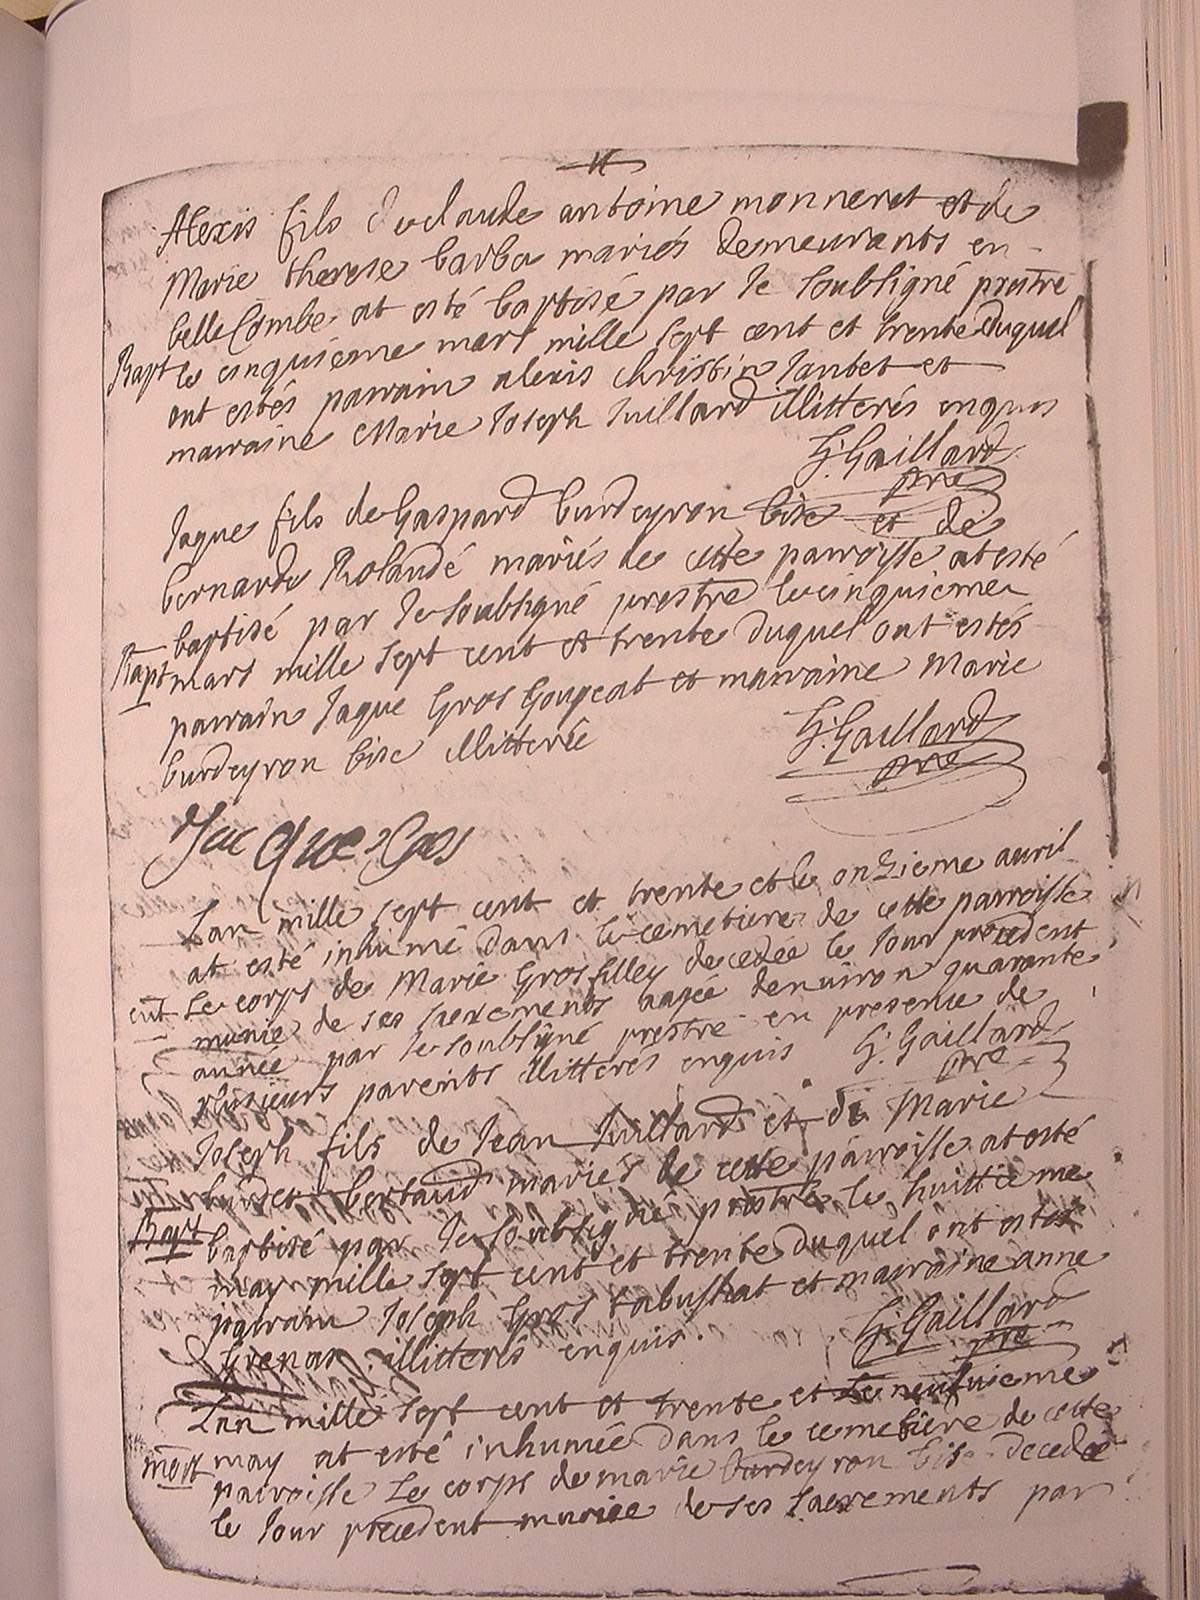 Alexis fils de claude antoine monneret et de
Marie therese barba mariés demeurants en
belle Combe at esté baptisé par le soubsigné prestre
Bapt le cinquieme mars mille sept cent et trente duquel
ont estés parrain alexis christin Jantet et
marraine Marie Joseph Juillard illitterés enquis
G: Gaillard
pre
Jaque fils de Gaspard burdeyron bise et de
bernarde Rolandé mariés de cette parroisse at esté
baptisé par le soubsigné prestre le cinquieme
Bapt mars mille sept cent et trente duquel ont estés
parrain Jaque Gros Goupeat et marraine Marie
burdeyron bise illitterée
G: Gaillard
pre
Jacque Gros
Lan mille sept cent et trente et le onzieme avril
at esté inhumé dans le cemetiere de cette parroisse
Le corps de Marie Grosfilley decedée le Jour precedent
munie de ses sacrements aagée denviron quarante
année par le soubsigné prestre en presence de
plusieurs parents illitterés enquis
G: Gaillard
pre
Joseph fils de Jean Juillard et de Marie
bertaud mariés de cette parroisse at esté
Bapt baptisé par le soubsigné prestre le huittieme
may mille sept cent et trente duquel ont estés
parrain Joseph Gros tabussiat et marraine anne
Grenar illitterés enquis.
G: Gaillard
pre
Lan mille sept cent et trente et Le neufvieme
mort may at esté inhumée dans le cemetiere de cette
parroisse Le corps de marie burdeyron bise decedée
le Jour precedent munie de ses sacrements par